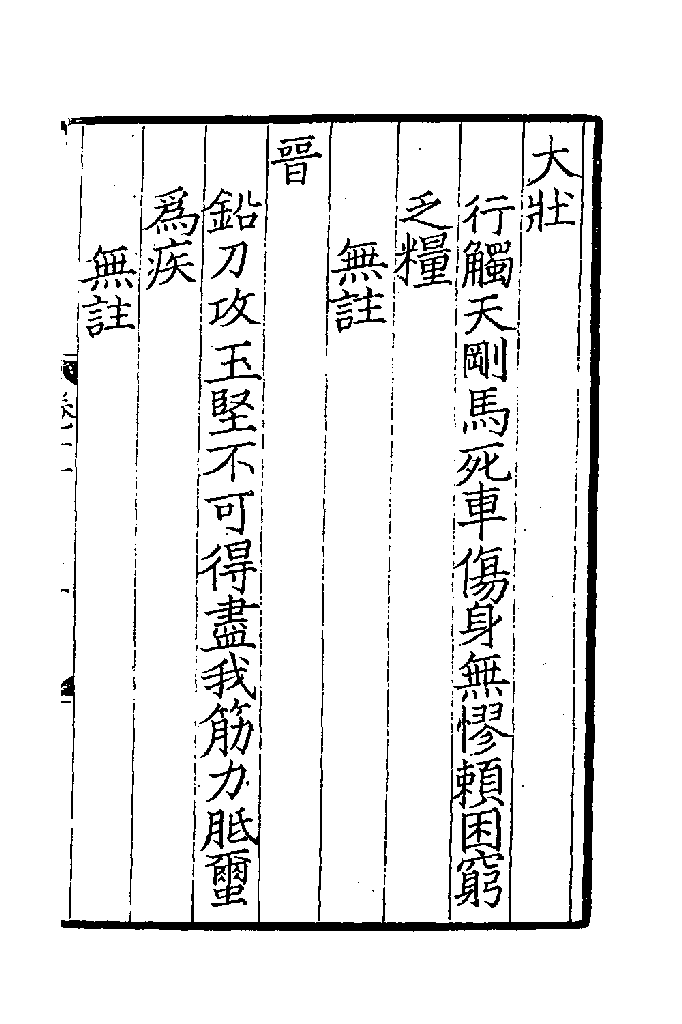 大壯
行觸天剛馬死車傷身無憀頼困窮
乏糧
無註
晉
鉛刀攻玉堅不可得盡我筋力胝𧕟
爲疾
無註